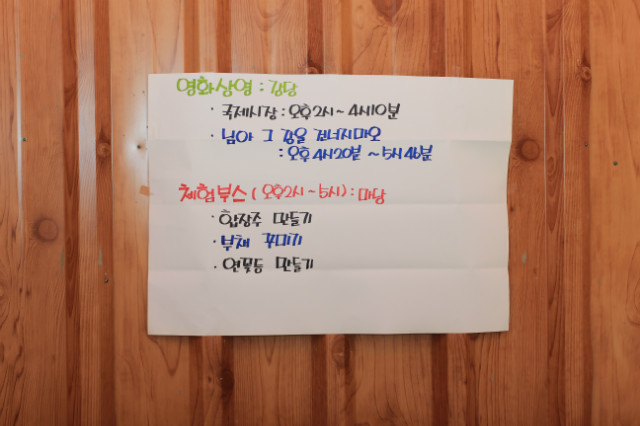 영화상영 : 강당
· 국제시장 : 오후2시~4시10분
· 님아 그 강을 건너지마오
: 오후4시20분 ~5시46분
체험부스 ( 오후2시~5시) : 마당
· 합장주 만들기
· 부채 꾸미기
· 연꽃등 만들기